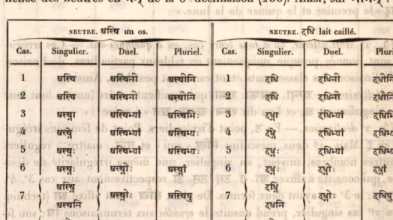 NEUTRE. अस्थि un os. NEUTRE. दधि lait caillé.
Cas. Singulier. Duel. Pluriel. Cas. Singulier. Duel.
1 अस्थि अस्थिनी अस्थीनि 1 दधि दधिनी
2 अस्थि अस्थिनी अस्थीनि 2 दधि दधिनी
3 अस्थ्ना अस्थिभ्यां अस्थिभिः 3 दध्ना दधिभ्यां
4 अस्थ्ने अस्थिभ्यां 4 दध्ने दधिभ्यां
5 अस्थ्नः अस्थिभ्यां 5 दध्नः दधिभ्यां
6 अस्थ्नः अस्थ्नोः अस्थ्नां 6 दध्नः दध्नोः
7 अस्थ्नि अस्थ्नोः अस्थिषु 7 दध्नि दध्नोः
अस्थनि दधनि